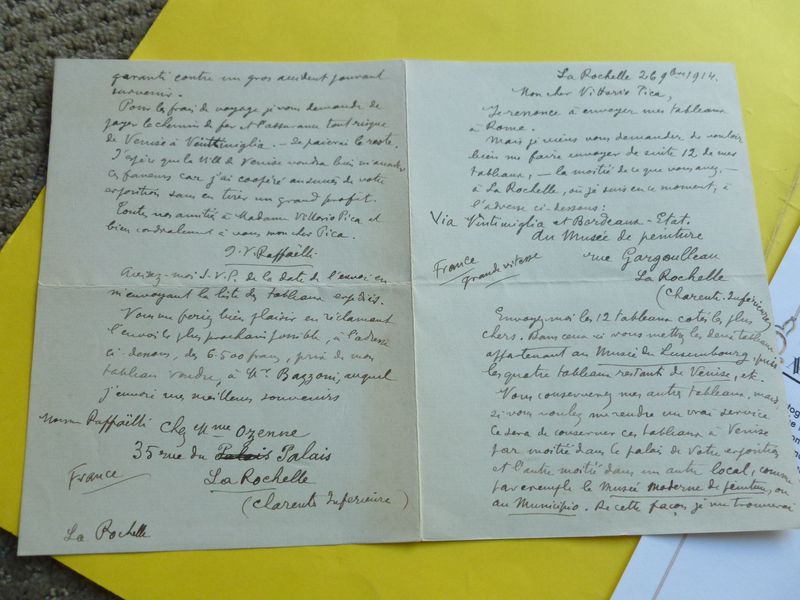 La Rochelle 26 9bre 1914.
Mon cher Vittorio Pica,
Je renonce à envoyer mes tableaux
à Rome.
Mais je viens vous demander de vouloir
bien me faire envoyer de suite 12 de mes
tableaux, — la moitié de ce que vous avez, —
à La Rochelle, où je suis en ce moment, à
l'adresse ci-dessous:
Via Vintimiglia et Bordeaux-Etat.
au Musée de peinture
rue Gargoulleau
La Rochelle
(Charente Inférieure)
France
grande vitesse
Envoyez moi les 12 tableaux cotés les plus
chers. Dans ceux-ci vous mettrez les deux tableaux
appartenant au Musée du Luxembourg, puis
les quatre tableaux restants de Venise, etc.
Vous conserverez mes autres tableaux, mais,
si vous voulez me rendre un vrai service
ce sera de conserver ces tableaux à Venise
par moitié dans le palais de votre exposition
et l'autre moitié dans un autre local, comme
par exemple le Musée moderne de peinture, ou
au Municipio. De cette façon je me trouverai
garanti contre un gros accident pouvant
survenir.
Pour les frais de voyage je vous demande de
payer le chemin de fer et l'assurance tout risque
de Venise à Vintimiglia. — Je paierai le reste.
J'espère que la ville de Venise voudra bien m'accorder
ces faveurs car j'ai coopéré au succès de votre
exposition sans en tirer un grand profit.
Toutes nos amitiés à Madame Vittorio Pica et
bien cordialement à vous mon cher Pica.
J. F. Raffaëlli
Avisez-moi S.V.P. de la date de l'envoi en
m'envoyant la liste des tableaux expédiés.
Vous me feriez bien plaisir en réclamant
l'envoi le plus prochain possible, à l'adresse
ci-dessous, des 6.500 francs, prix de mon
tableau vendu, à Mr. Bazzoni, auquel
j'envoie mes meilleurs souvenirs
Raffaëlli chez Mme Ozenne
35 rue du Palais Palais
La Rochelle
France
(Charente Inférieure)
La Rochelle